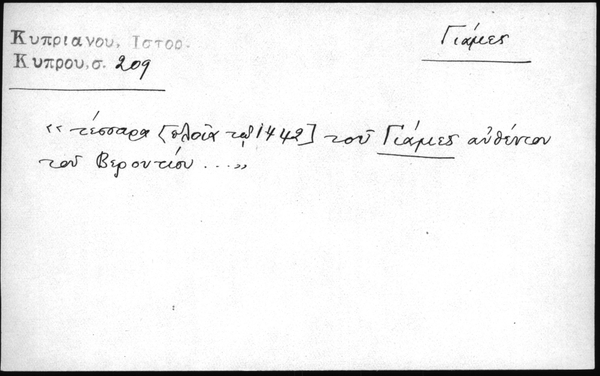 Κυπριανου, Ιστορ.
Κυπρου, σ. 209
Γιάμες
"τέσσαρα [πλοῖα τῷ 1442] τοῦ Γιάμες αὐθέντου
τοῦ Βεροντίου ..."